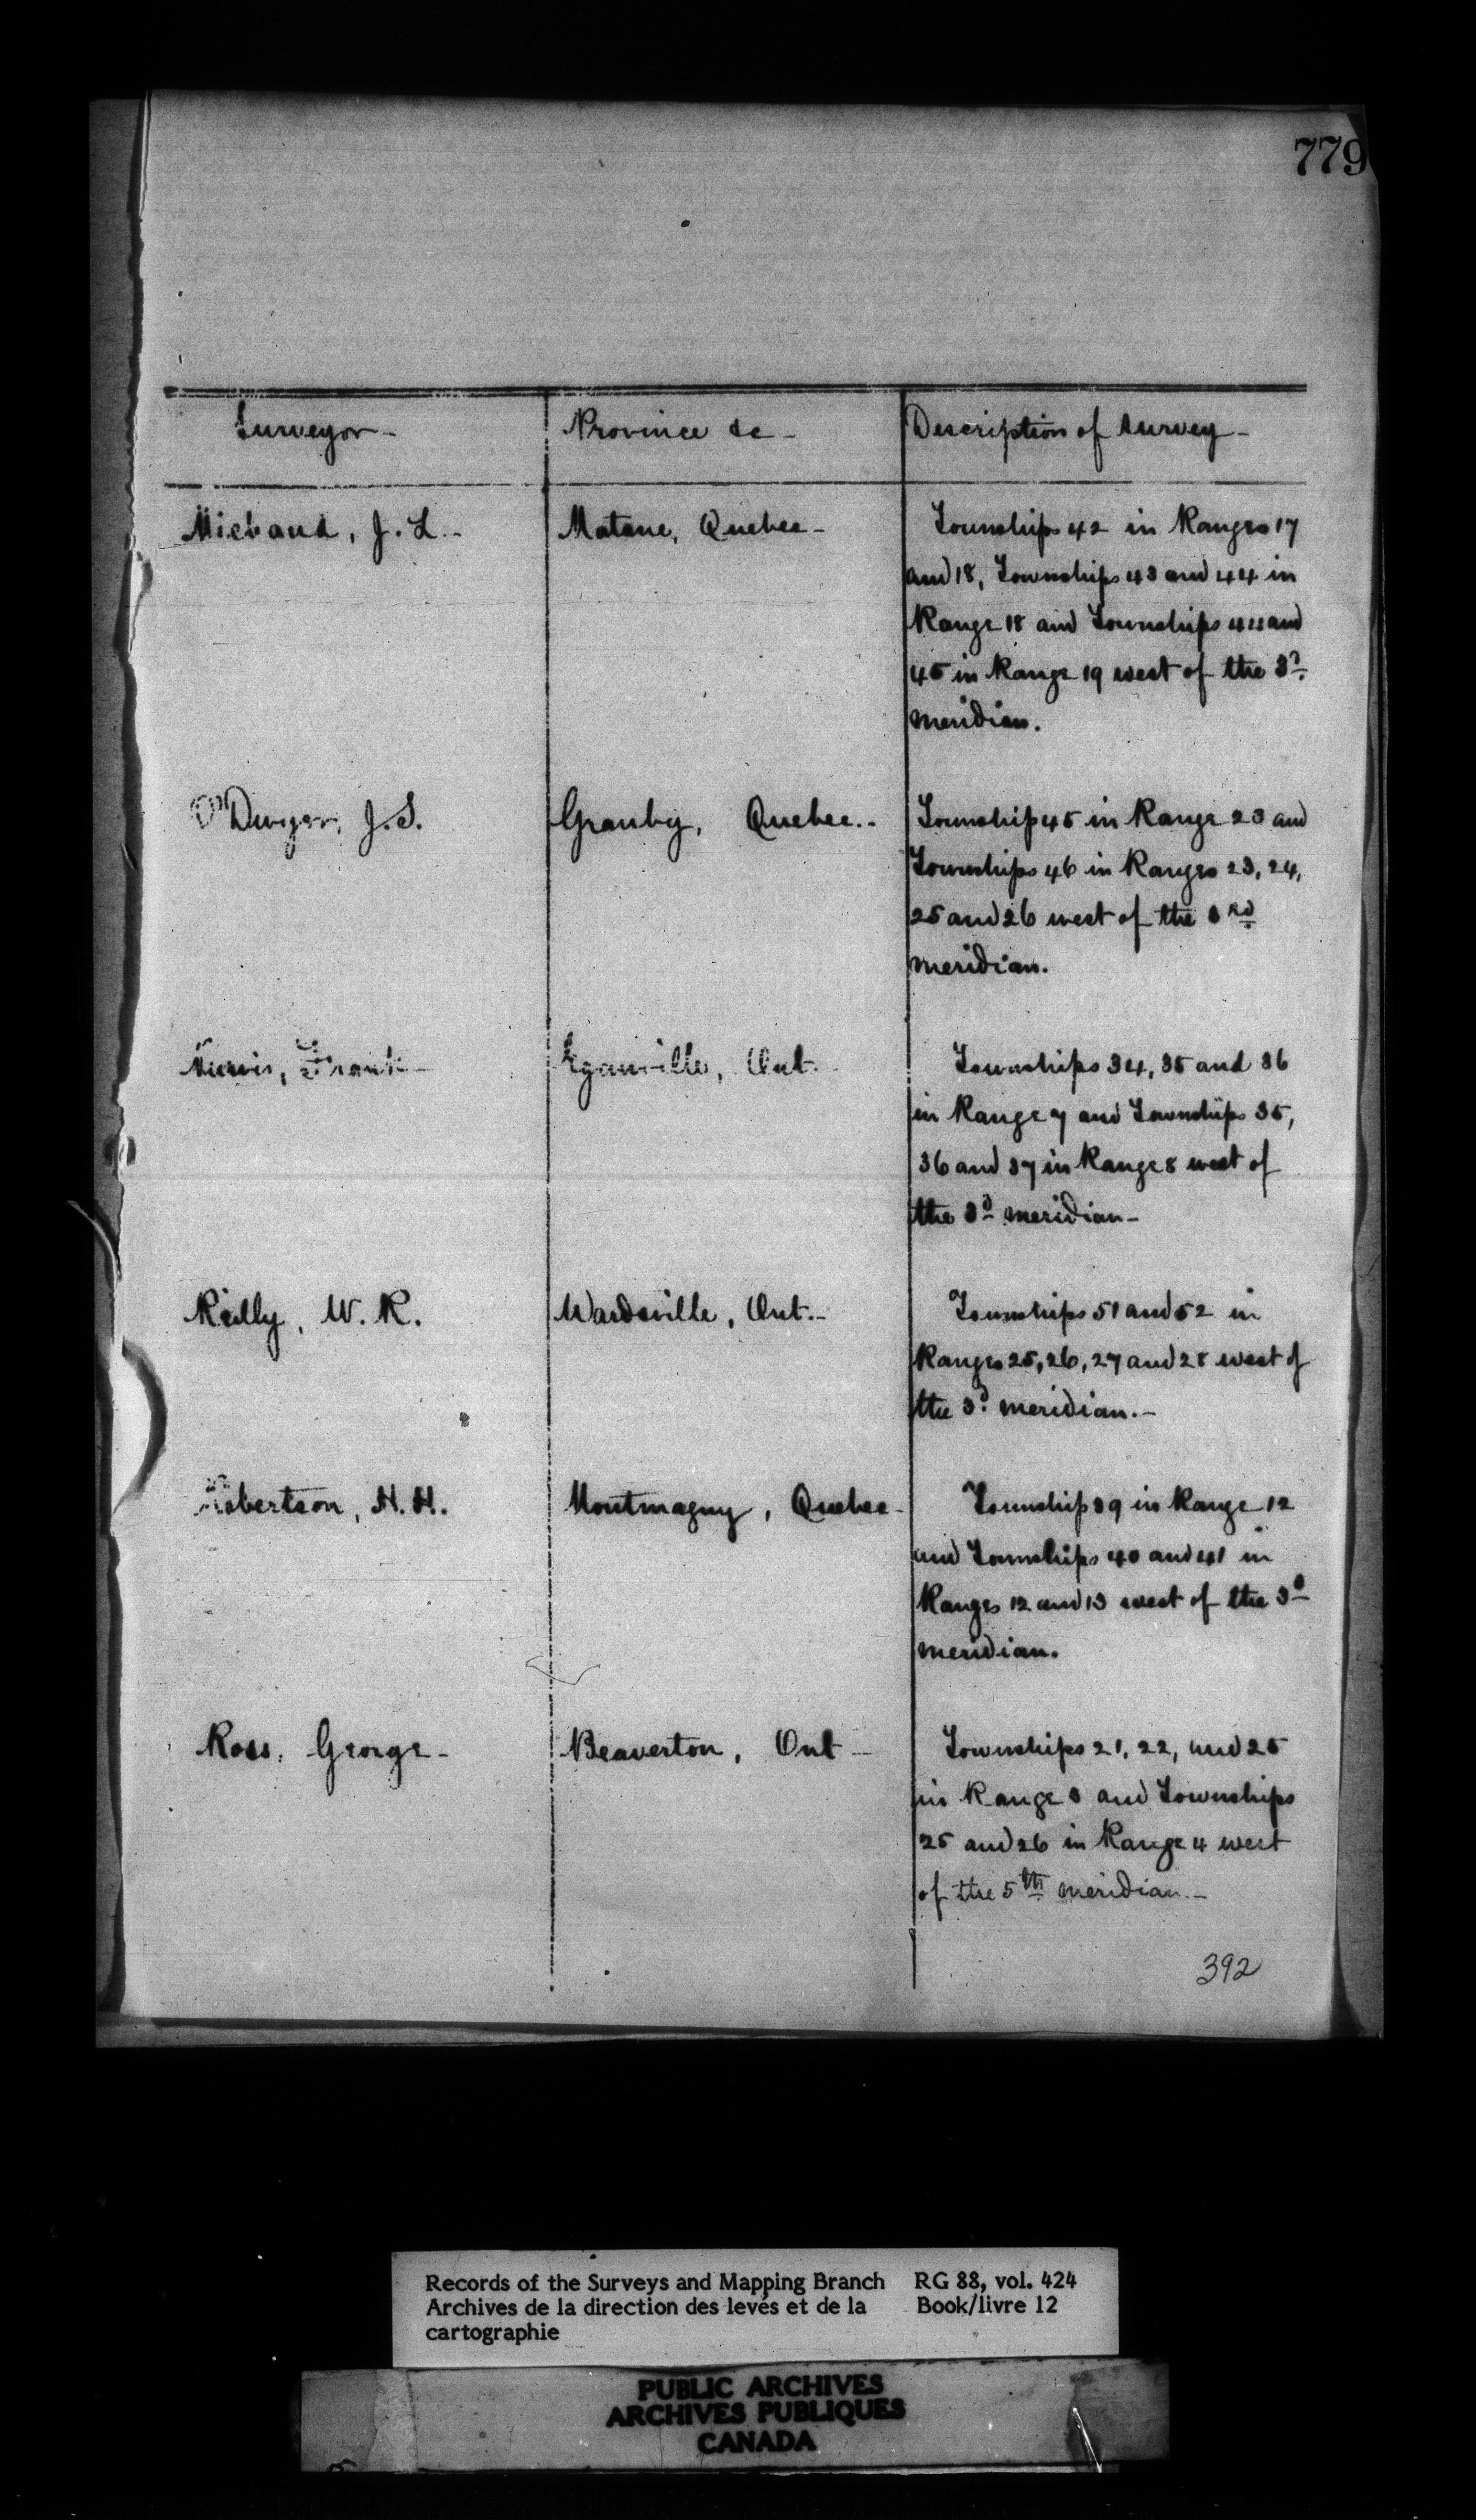 779
Surveyor - Province &c - Description of Survey -
Michaud, J. L. - Matane, Quebec - Townships 42 in Ranges 17
and 18, Townships 43 and 44 in
Range 18 and Townships 44 and
45 in Range 19 west of the 3d
meridian.
O'Dwyer, J. S. Granby, Quebec. - Township 45 in Range 23 and
Townships 46 in Ranges 23, 24,
25 and 26 west of the 3rd
meridian.
Frank - Eganville, Ont. Townships 34, 35 and 36
in Range 7 and Townships 35,
36 and 37 in Range 8 west of
the 3d meridian -
Reilly, W. R. Wardsville, Ont. - Townships 51 and 52 in
Ranges 25, 26, 27 and 28 west of
the 3d meridian. -
Robertson, H. H. Montmagny, Quebec - Township 39 in Range 12
and Townships 40 and 41 in
Ranges 12 and 13 west of the 3d
meridian.
Ross, George - Beaverton, Ont - Townships 21, 22, and 25
in Range 3 and Townships
25 and 26 in Range 4 west
of the 5th meridian. -
392
Records of the Surveys and Mapping Branch RG 88, vol. 424
Archives de la direction des levés et de la Book/livre 12
cartographie
PUBLIC ARCHIVES
ARCHIVES PUBLIQUES
CANADA